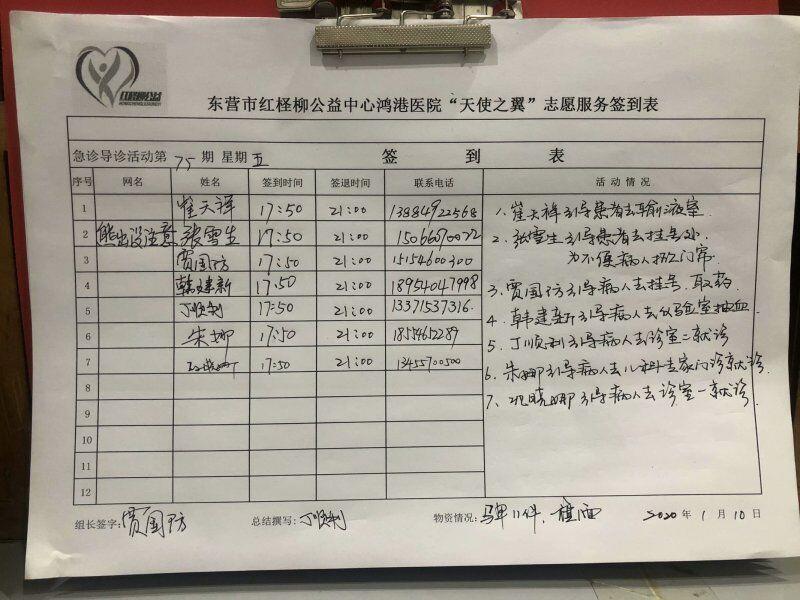 红柽柳公益
东营市红柽柳公益中心鸿港医院“天使之翼”志愿服务签到表
急诊导诊活动第75期 星期五 签到表
序号 网名 姓名 签到时间 签退时间 联系电话 活动情况
1 崔天祥 17:50 21:00 13884922568
2 熊出没注意 张雪生 17:50 21:00 15066690022
3 贾国防 17:50 21:00 15154600300
4 韩建新 17:50 21:00 18954047998
5 丁顺利 17:50 21:00 13371537316
6 朱娜 17:50 21:00 18554652289
7 17:50 21:00 13455700500
8
9
10
11
12
1、崔天祥引导患者去输液室
2、张雪生引导患者去挂号处
为不便病人掀门帘
3、贾国防引导病人去挂号、取药
4、韩建新引导病人去化验室抽血
5、丁顺利引导病人去诊室二就诊
6、朱娜引导病人去儿科专家门诊就诊
7、晓娜引导病人去诊室一就诊
组长签字:贾国防 总结撰写:丁顺利 物资情况:马甲11件、旗一面 2020年1月10日